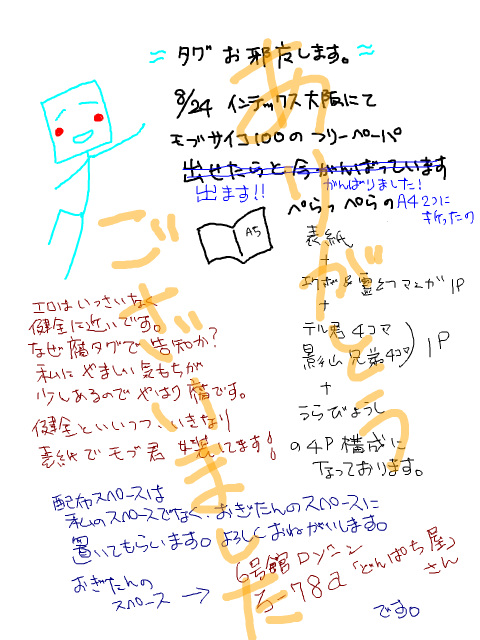 ≈ タグお邪魔します。≈
8/24 インテックス大阪にて
モブサイコ100のフリーペーパ
出せたらと今がんばっています
出ます!! がんばりました!
ぺらっぺらのA4 2つに
折ったの
A5
表紙
+
エクボ&霊とコマンガ 1P
+
テル君4コマ
影山兄弟4コマ
1P
+
うらびょうし
の4P構成に
なっております。
エロはいっさいなく
健全に近いです。
なぜ腐タグで告知か?
私にやましい気もちが
少しあるのでやはり腐です。
健全といいつつ、いきなり
表紙でモブ君 女装してます!
配布スペースは
私のスペースでなく、おぎたんのスペースに
置いてもらいます。よろしくおねがいします。
おぎたんの
スペース →
6号館Dゾーン
ら-78a「どんぱち屋」
さん
です。
ありがとう
ございました